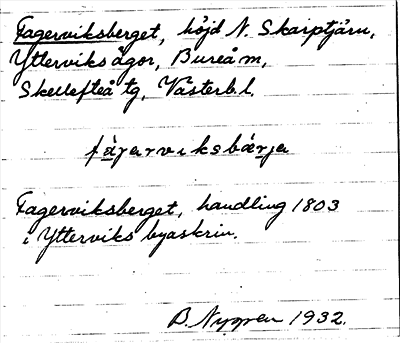 Fagerviksberget, höjd N. Skarptjärn,
Ytterviks ägor, Bureå m,
Skellefteå tg, Västerb. l.
fa̱garviksbæ̱rja
Fagerviksberget, handling 1803
i Ytterviks byaskrin.
B. Nygren 1932.